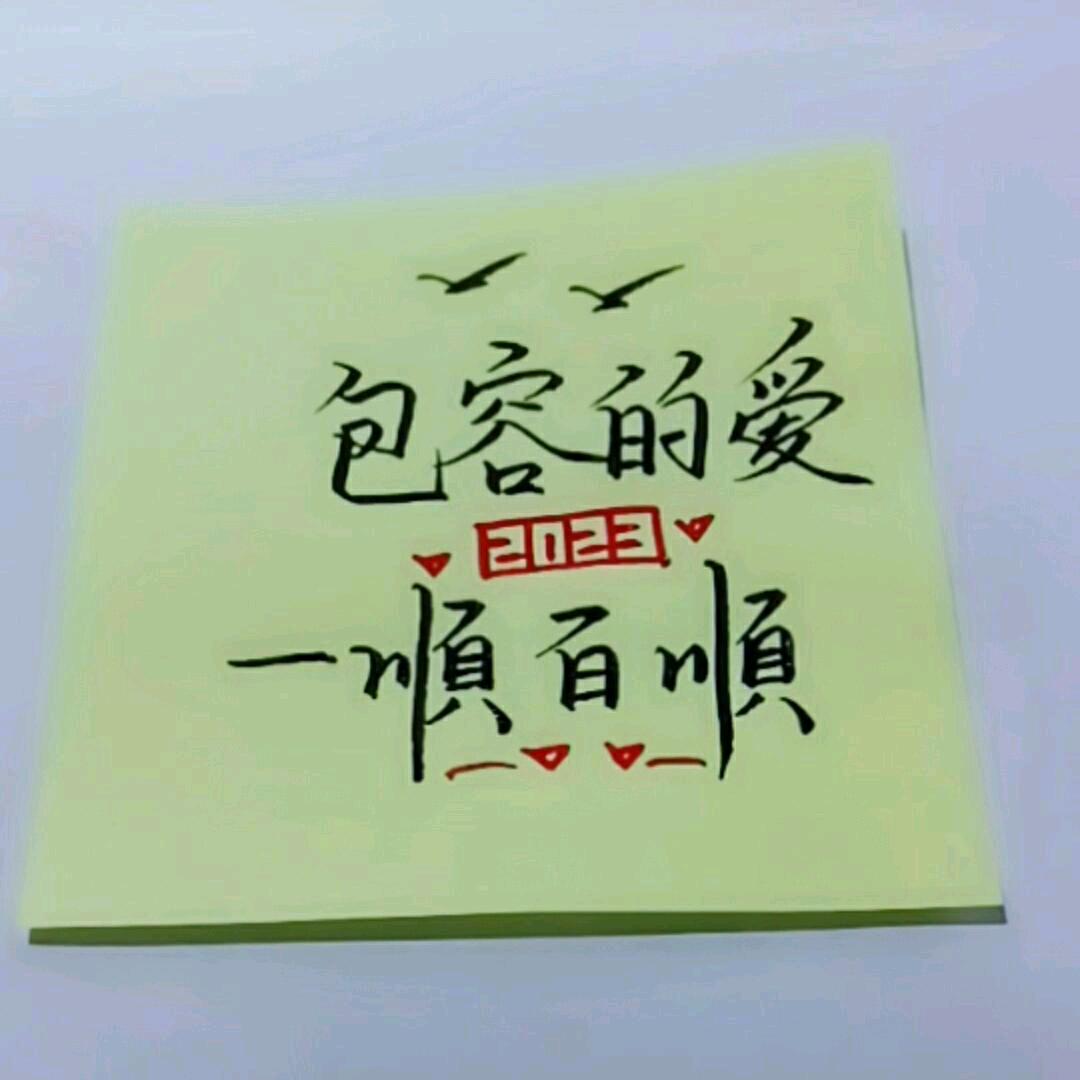 包容的爱
2023
一順百順